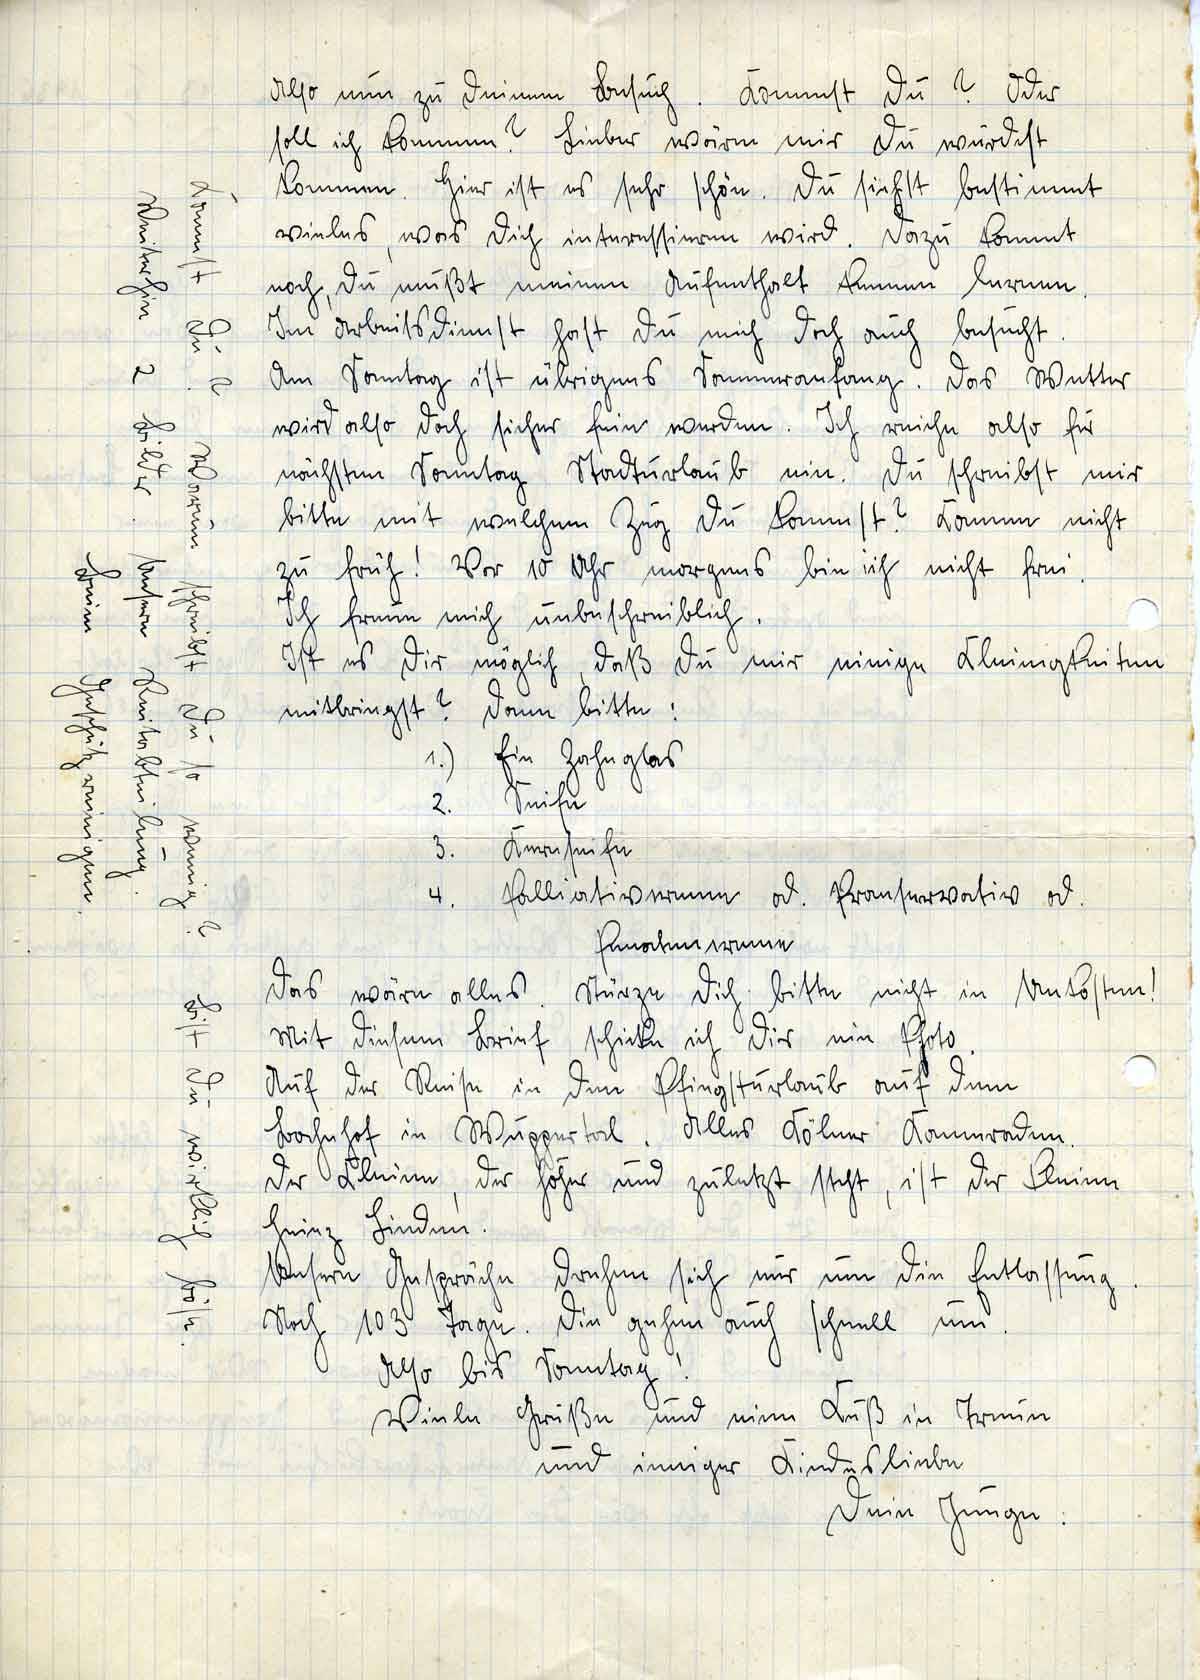 Also nun zu Deinem Besuch. Kommst Du? Oder
soll ich kommen? Lieber wäre mir Du würdest
kommen. Hier ist es sehr schön. Du siehst bestimmt
vieles, was Dich interessieren wird. Dazu kommt
noch, Du mußt meinen Aufenthalt kennen lernen.
Im Arbeitsdienst hast Du mich doch auch besucht.
Am Sonntag ist übrigens Sommeranfang. Das Wetter
wird also doch sicher fein werden. Ich reiche also für
nächsten Sonntag Stadturlaub ein. Du schreibst mir
bitte mit welchem Zug Du kommst? Komme nicht
zu früh! Vor 10 Uhr morgens bin ich nicht frei.
Ich freue mich unbeschreiblich.
Ist es Dir möglich, daß Du mir einige Kleinigkeiten
mitbringst? Dann bitte:
1.) Ein Zahnglas
2. Seife
3. Kernseife
4. Palliativcreme od. Präservativ od.
Das wäre alles. Stürze Dich bitte nicht in Unkosten!
Mit diesem Brief schicke ich Dir ein Photo.
Auf der Reise in den Pfingsturlaub auf dem
Bahnhof in Wuppertal. Alles Kölner Kameraden.
Der Kleine, der höher und zuletzt steht, ist der kleine
Heinz Linden.
Unsere Gespräche drehen sich nur um die Entlassung.
Noch 103 Tage. Die gehen auch schnell um.
Also bis Sonntag!
Viele Grüße und einen Kuß in Treue
und inniger Kindesliebe
Dein Junge.
Kommst Du? Warum schreibst Du so wenig? Bist Du wirklich böse.
Weiterhin 2 Bilder. Unsere Reitabteilung.
Beim Geschützreinigen.